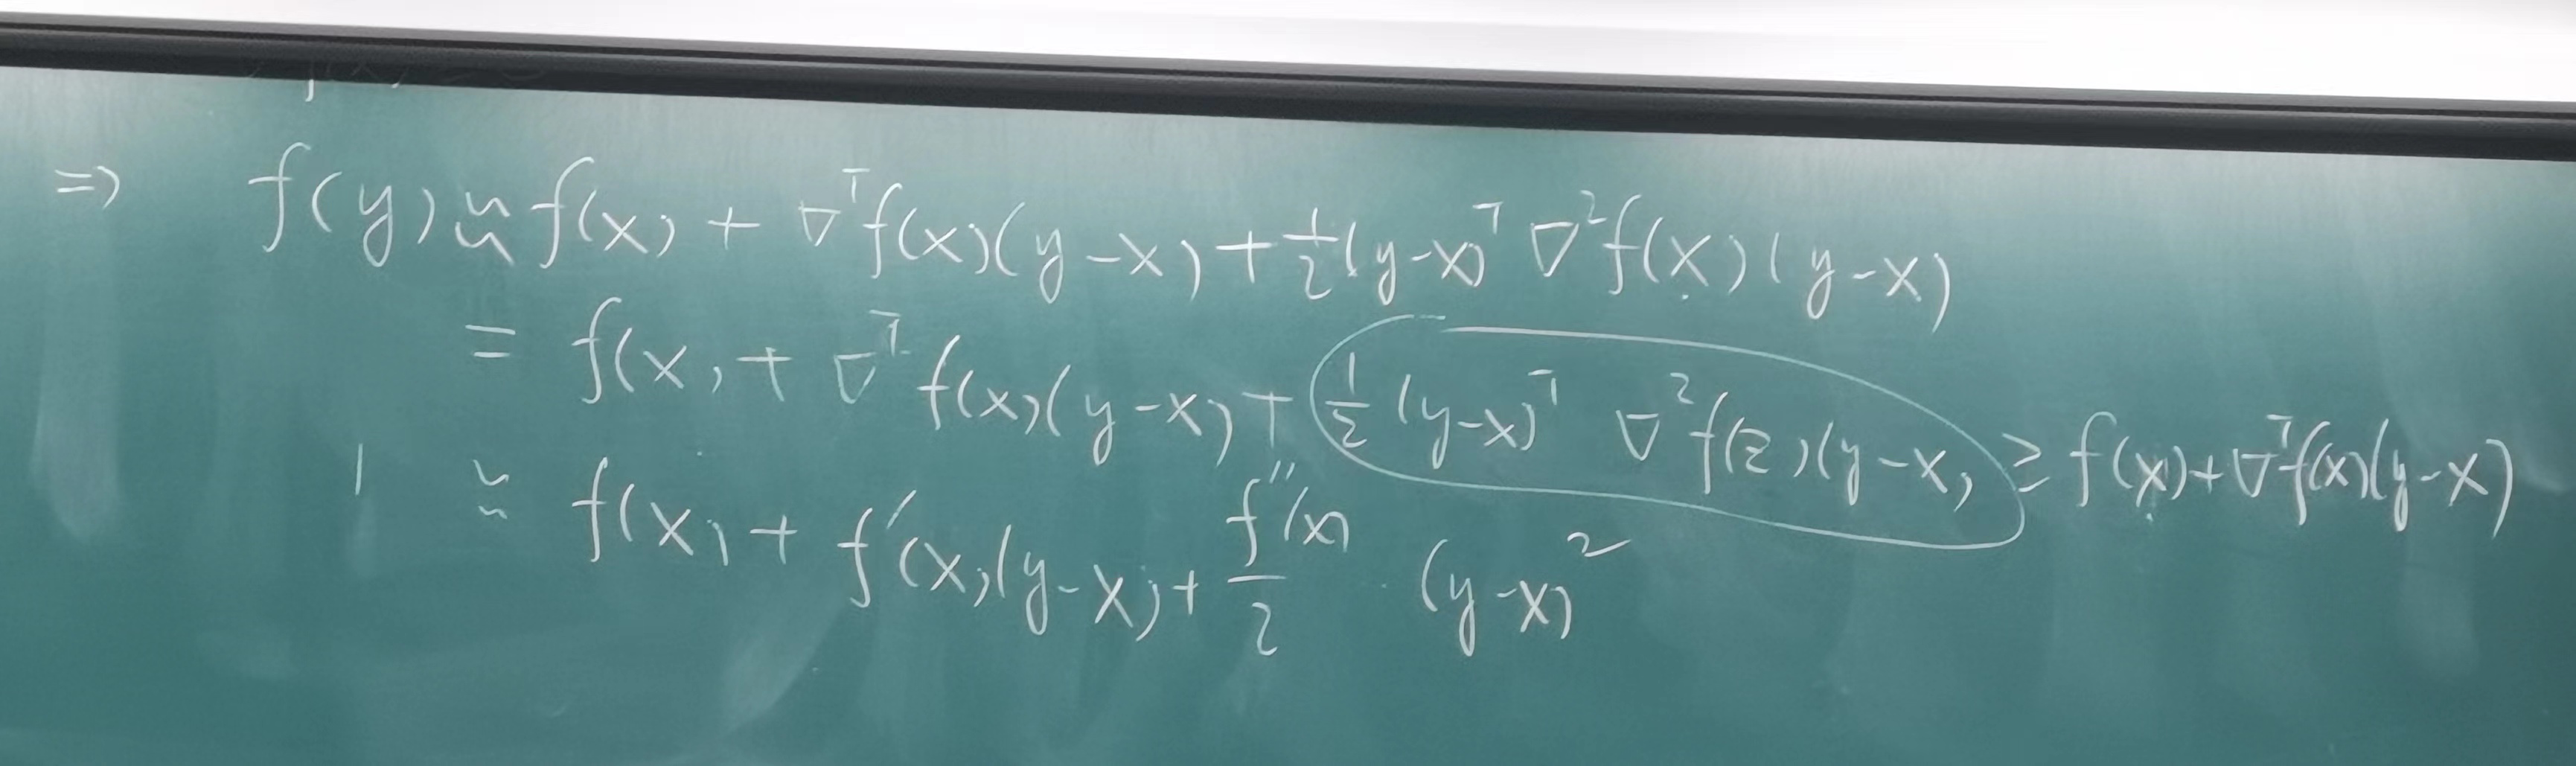 ⇒ f(y) ≈ f(x) + ∇ᵀf(x)(y-x) + ½(y-x)ᵀ ∇²f(x)(y-x)
= f(x) + ∇ᵀf(x)(y-x) + ½(y-x)ᵀ ∇²f(z)(y-x) ≥ f(x)+∇ᵀf(x)(y-x)
≈ f(x) + f'(x)(y-x) + f''(x)/2 · (y-x)²